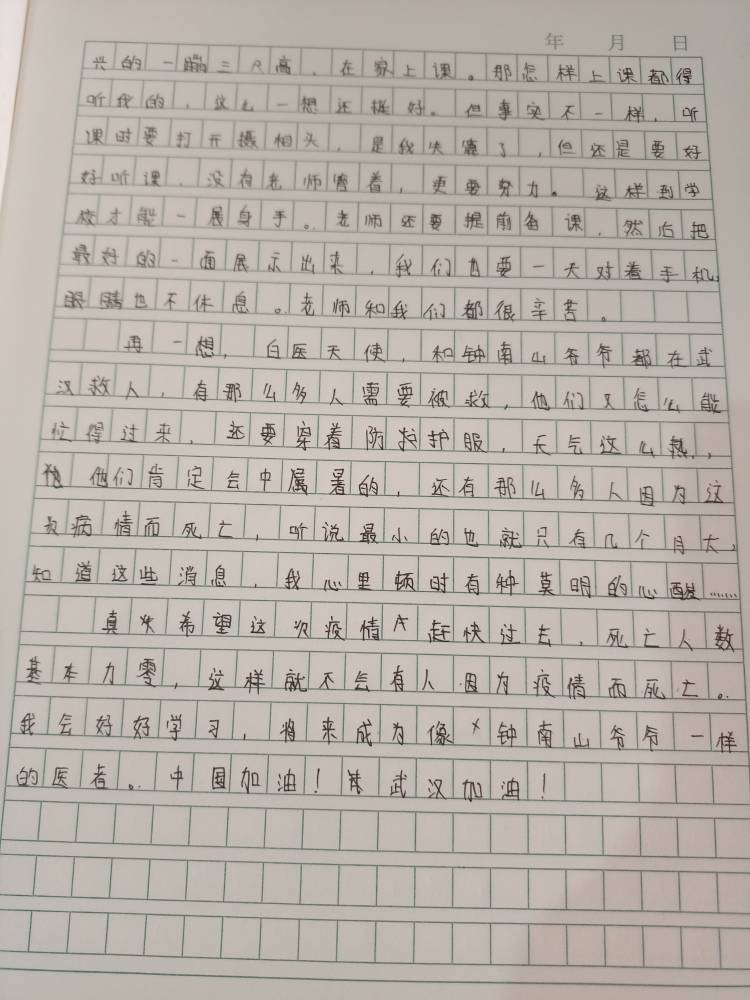 年 月 日
兴的一蹦三尺高，在家上课。那怎样上课都得
听我的，这么一想还挺好。但事实不一样，听
课时要打开摄相头，是我失算了，但还是要好
好听课，没有老师管着，更要努力。这样到学
校才能一展身手。老师还要提前备课，然后把
最好的一面展示出来，我们也要一天对着手机，
眼睛也不休息。老师和我们都很辛苦。
再一想，白医天使，和钟南山爷爷都在武
汉救人，有那么多人需要被救，他们又怎么能
忙得过来，还要穿着防护服，天气这么热，
他们肯定会中暑的，还有那么多人因为这
次病情而死亡，听说最小的也就只有几个月大，
知道这些消息，我心里顿时有种莫明的心酸……
真失希望这次疫情赶快过去，死亡人数
基本力零，这样就不会有人因为疫情而死亡。
我会好好学习，将来成为像钟南山爷爷一样
的医者。中国加油！武汉加油！